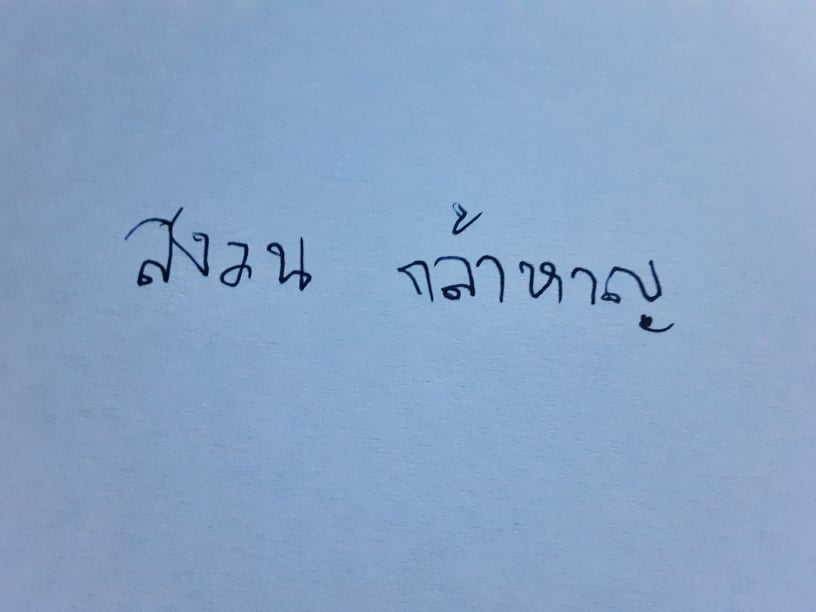 สงวน กล้าหาญ